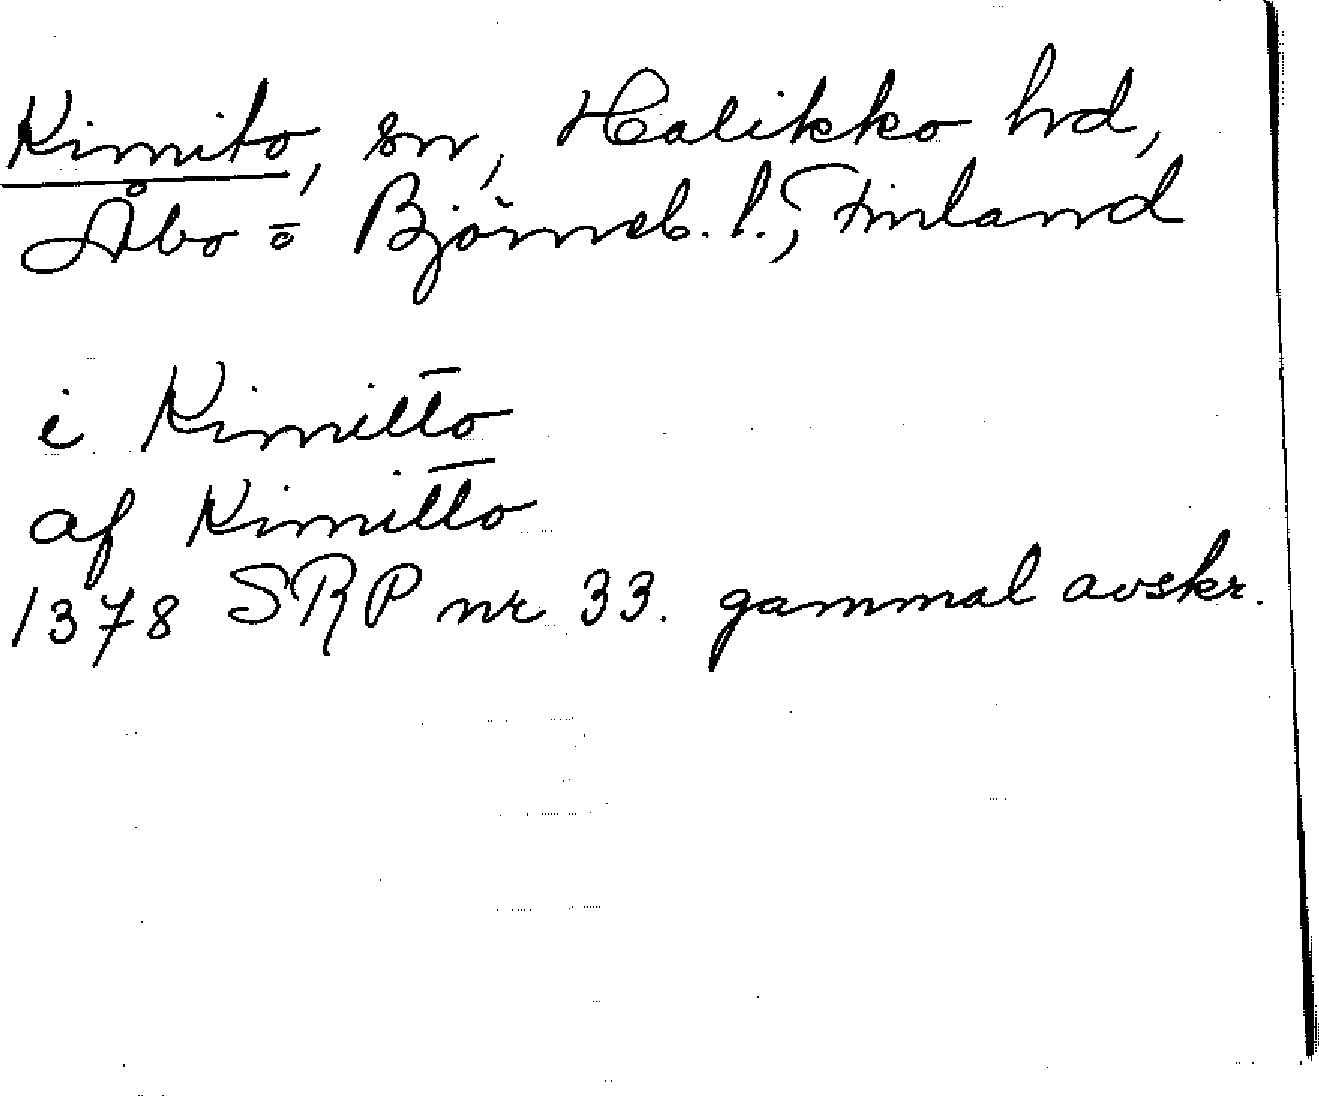 Kimito, sn, Halikko hd,
Åbo o Björneb. l., Finland
i Kimitto
af Kimitto
1378 SRP nr 33. gammal avskr.